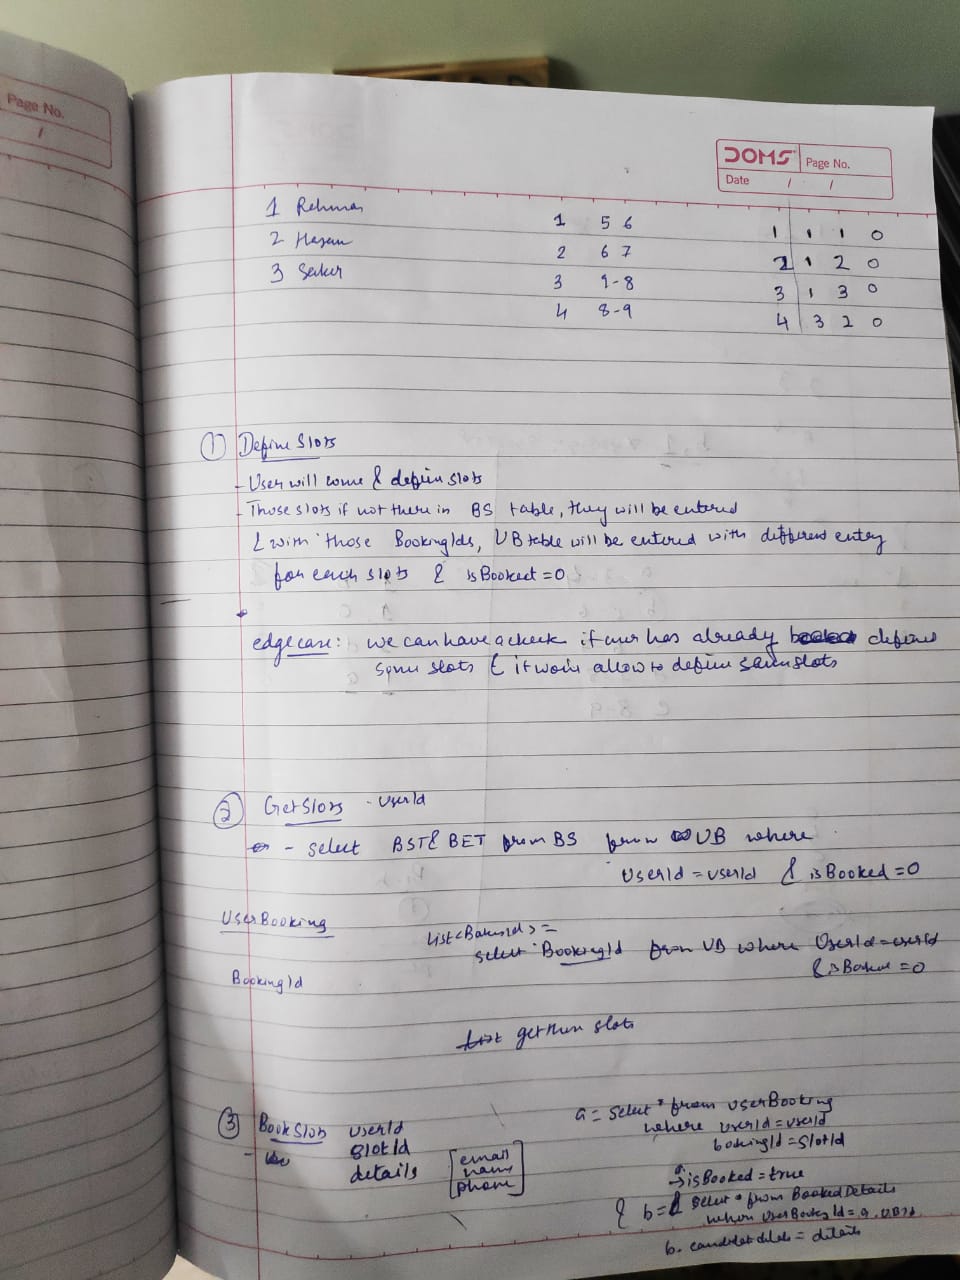 Page No.
/
DOMS Page No.
Date / /
1 Rehman 1 5 6 1 1 1 0
2 Hasan 2 6 7 2 1 2 0
3 3 9-8 3 1 3 0
4 8-9 4 3 2 0
① Define Slots
- User will come & define slots
- Those slots if not there in BS table, they will be entered
& with those BookingIds, UB table will be entered with different entry
for each slots & isBooked=0
edge case: we can have a check if user has already defined
same slots & it won't allow to define same slots
② GetSlots - userId
- select BST & BET from BS from UB where
UserId = userId & isBooked=0
UserBooking
List< > =
select BookingId from UB where UserId=userId
& isBooked=0
BookingId
get then slots
③ BookSlots userId
slotId
details [email
name
phone]
a = select * from userBooking
where userId=userId
bookingId=slotId
isBooked=true
& b= select * from BookedDetails
where UserBookingId=a.UBId
b. candidate details = details